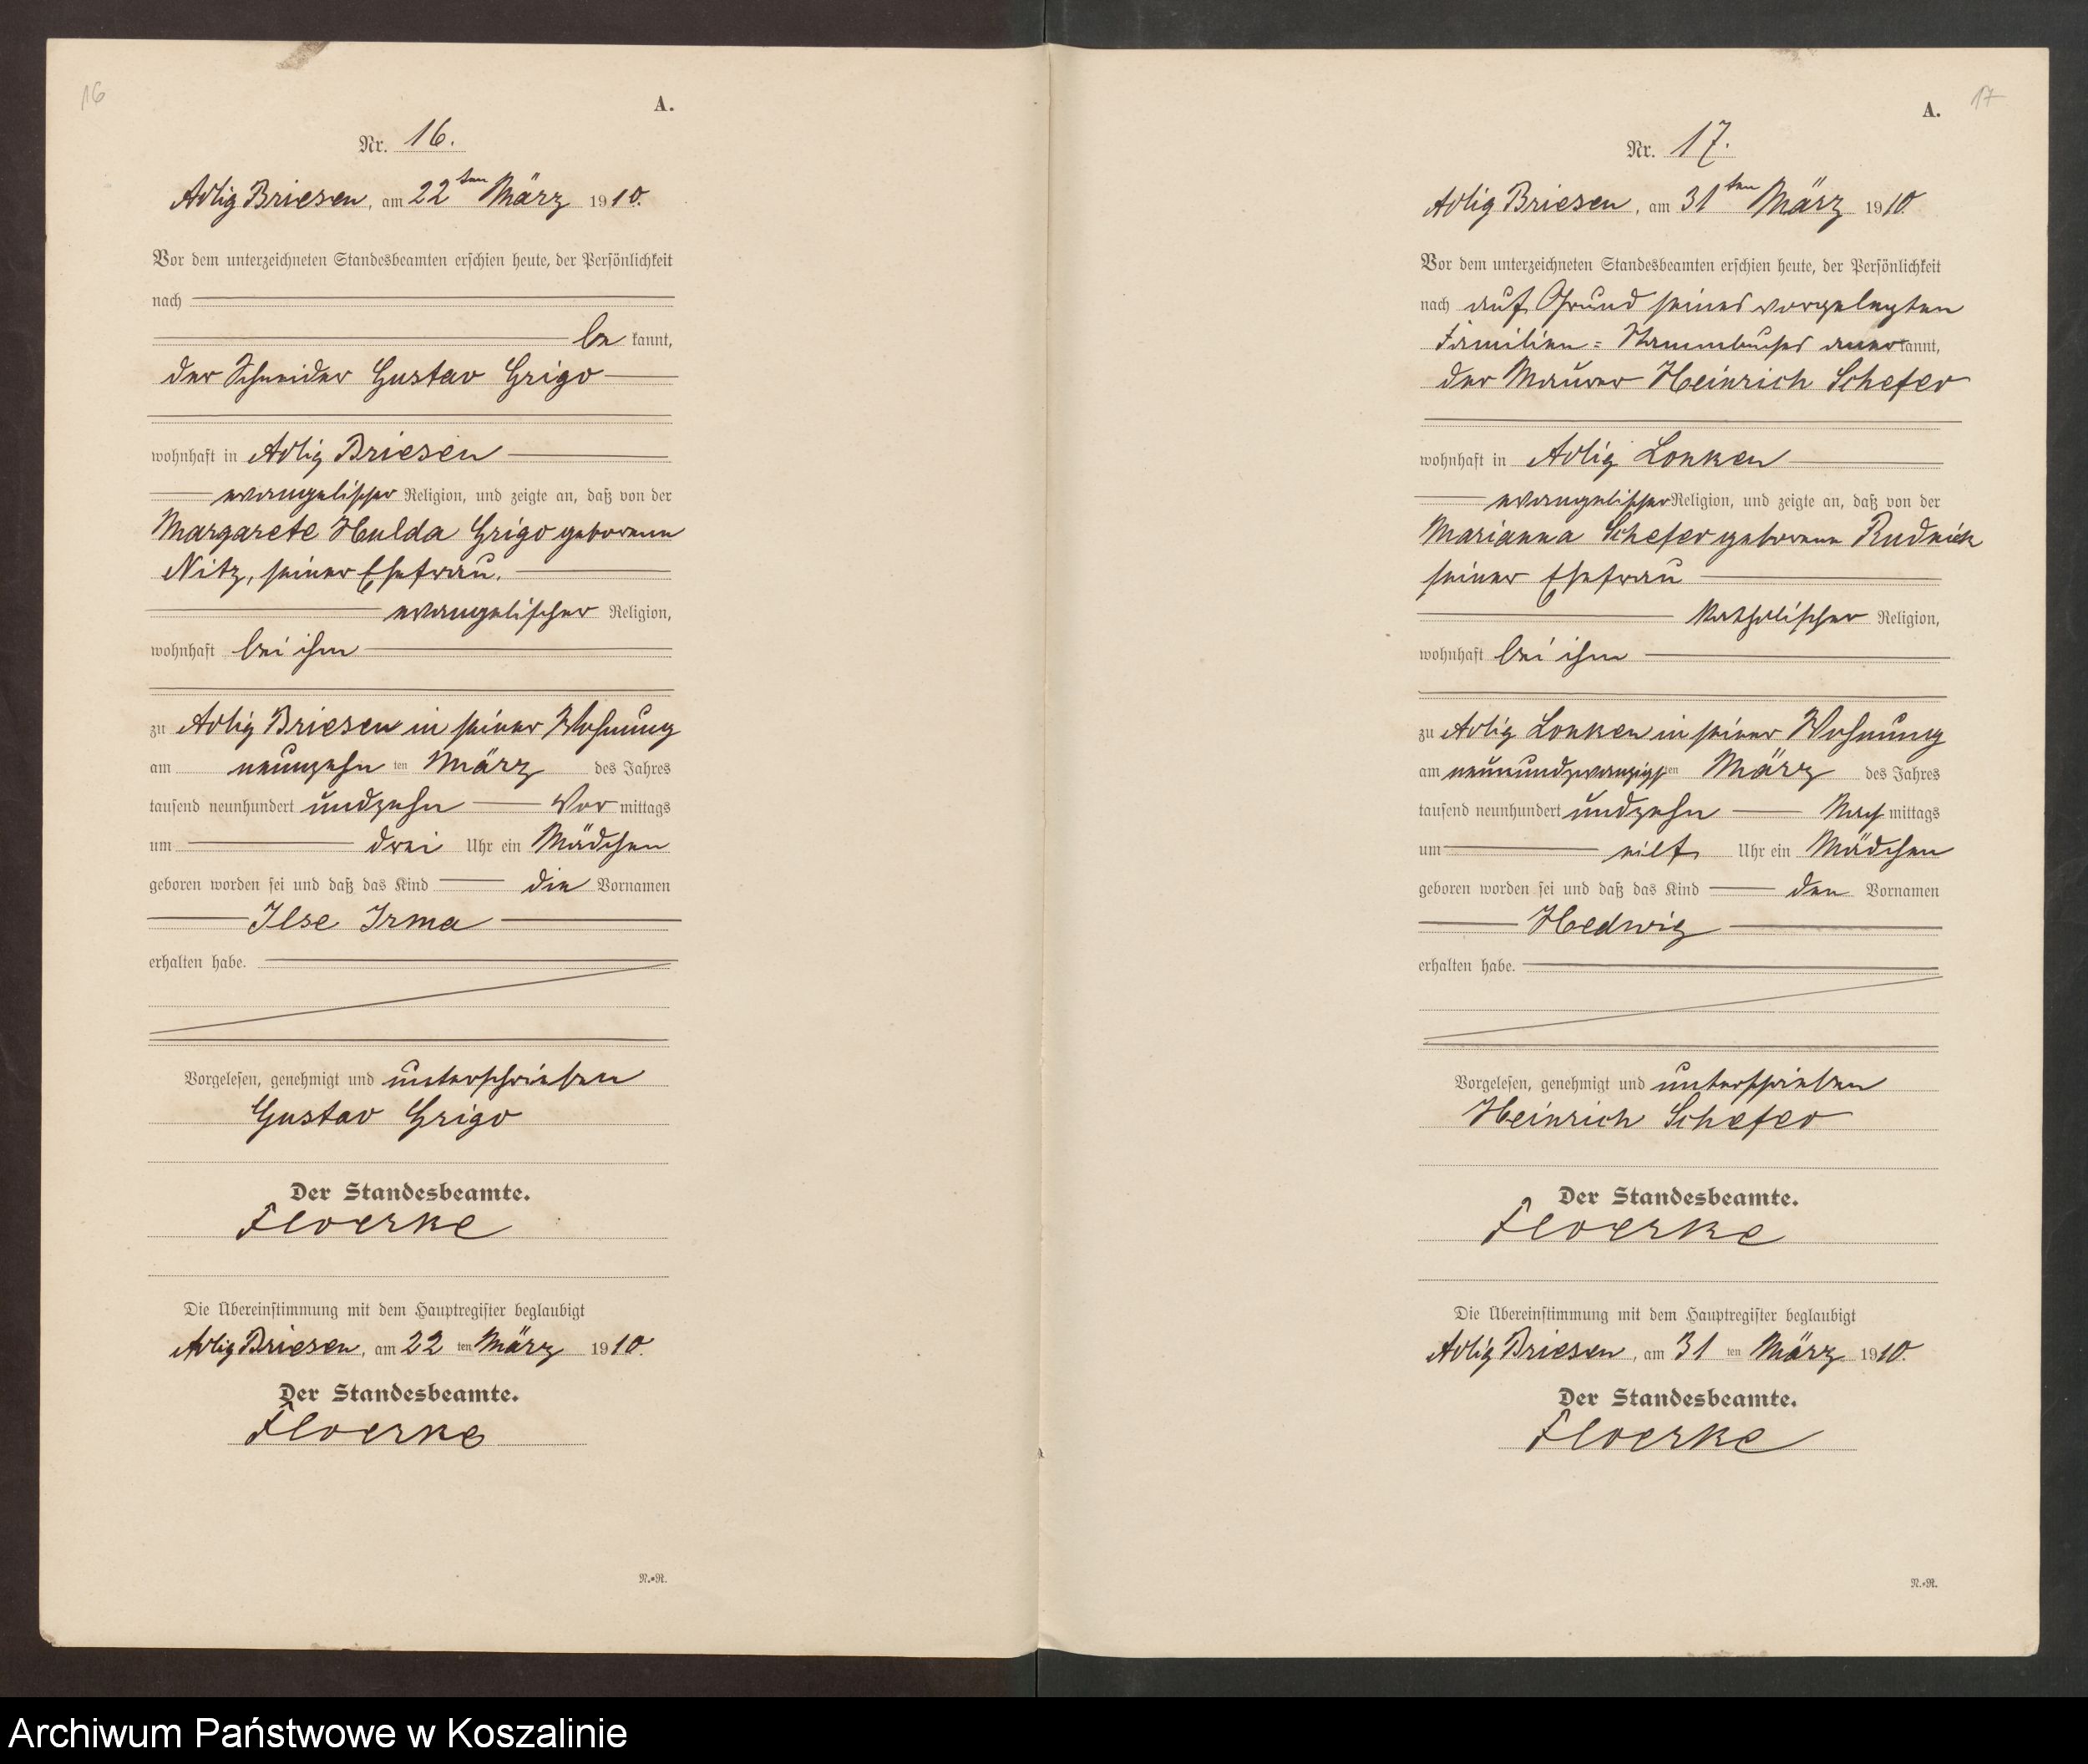 16
A.
Nr. 16.
Adlig Briesen, am 22ten März 1910.
Vor dem unterzeichneten Standesbeamten erschien heute, der Persönlichkeit
nach
bekannt,
der Schneider Gustav Grigo
wohnhaft in Adlig Briesen
evangelischer Religion, und zeigte an, daß von der
Margarete Hulda Grigo geborenen
Nitz, seiner Ehefrau.
evangelischer Religion,
wohnhaft bei ihm
zu Adlig Briesen in seiner Wohnung
am neunzehnten März des Jahres
tausend neunhundert undzehn Vormittags
um drei Uhr ein Mädchen
geboren worden sei und daß das Kind die Vornamen
Ilse Irma
erhalten habe.
Vorgelesen, genehmigt und unterschrieben
Gustav Grigo
Der Standesbeamte.
Floerke
Die Übereinstimmung mit dem Hauptregister beglaubigt
Adlig Briesen, am 22ten März 1910.
Der Standesbeamte.
Floerke
N.=R.
17
A.
Nr. 17.
Adlig Briesen, am 31ten März 1910.
Vor dem unterzeichneten Standesbeamten erschien heute, der Persönlichkeit
nach auf Grund seines vorgelegten
Familien=Stammbuches anerkannt,
der Maurer Heinrich Schefer
wohnhaft in Adlig Lonken
evangelischer Religion, und zeigte an, daß von der
Marianna Schefer geborene Rudnick
seiner Ehefrau
katholischer Religion,
wohnhaft bei ihm
zu Adlig Lonken in seiner Wohnung
am neunundzwanzigsten März des Jahres
tausend neunhundert undzehn Nachmittags
um eilf Uhr ein Mädchen
geboren worden sei und daß das Kind den Vornamen
Hedwig
erhalten habe.
Vorgelesen, genehmigt und unterschrieben
Heinrich Schefer
Der Standesbeamte.
Floerke
Die Übereinstimmung mit dem Hauptregister beglaubigt
Adlig Briesen, am 31ten März 1910.
Der Standesbeamte.
Floerke
N.=R.
Archiwum Państwowe w Koszalinie